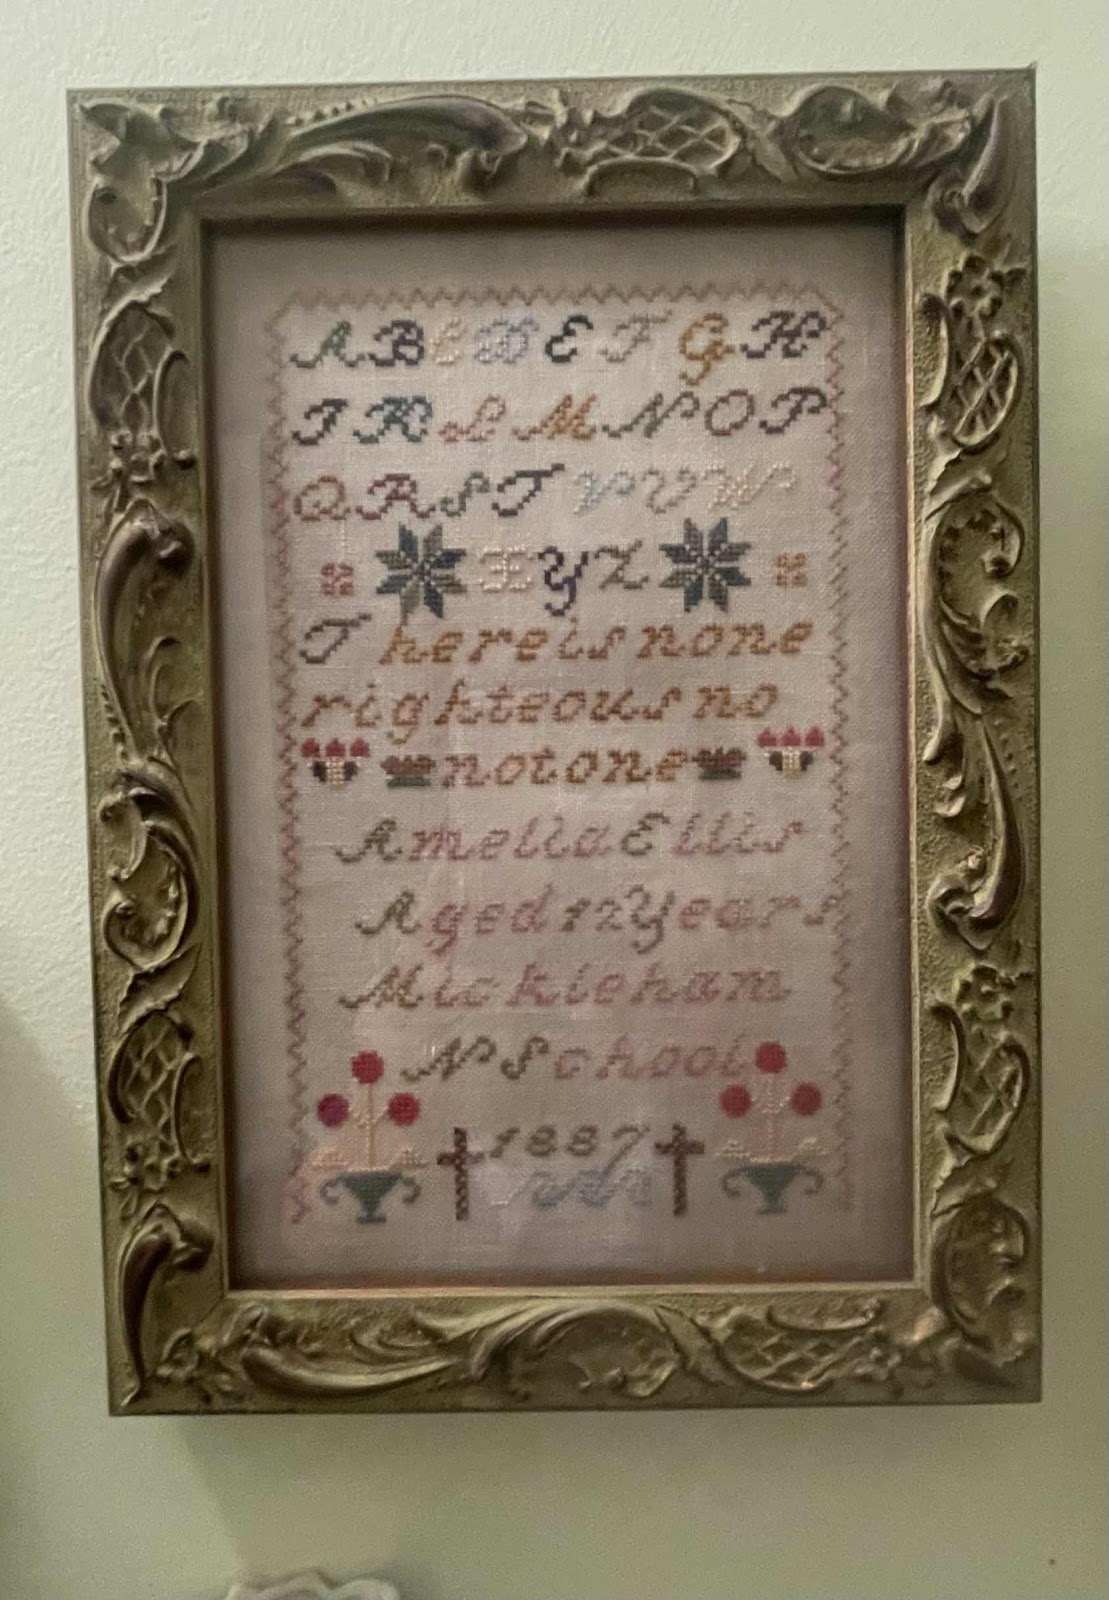 A B C D E F G H
I K L M N O P
Q R S T V U W
X Y Z
There is none
righteous no
not one
Amelia Ellis
Aged 12 Years
Mickleham
N School
1887